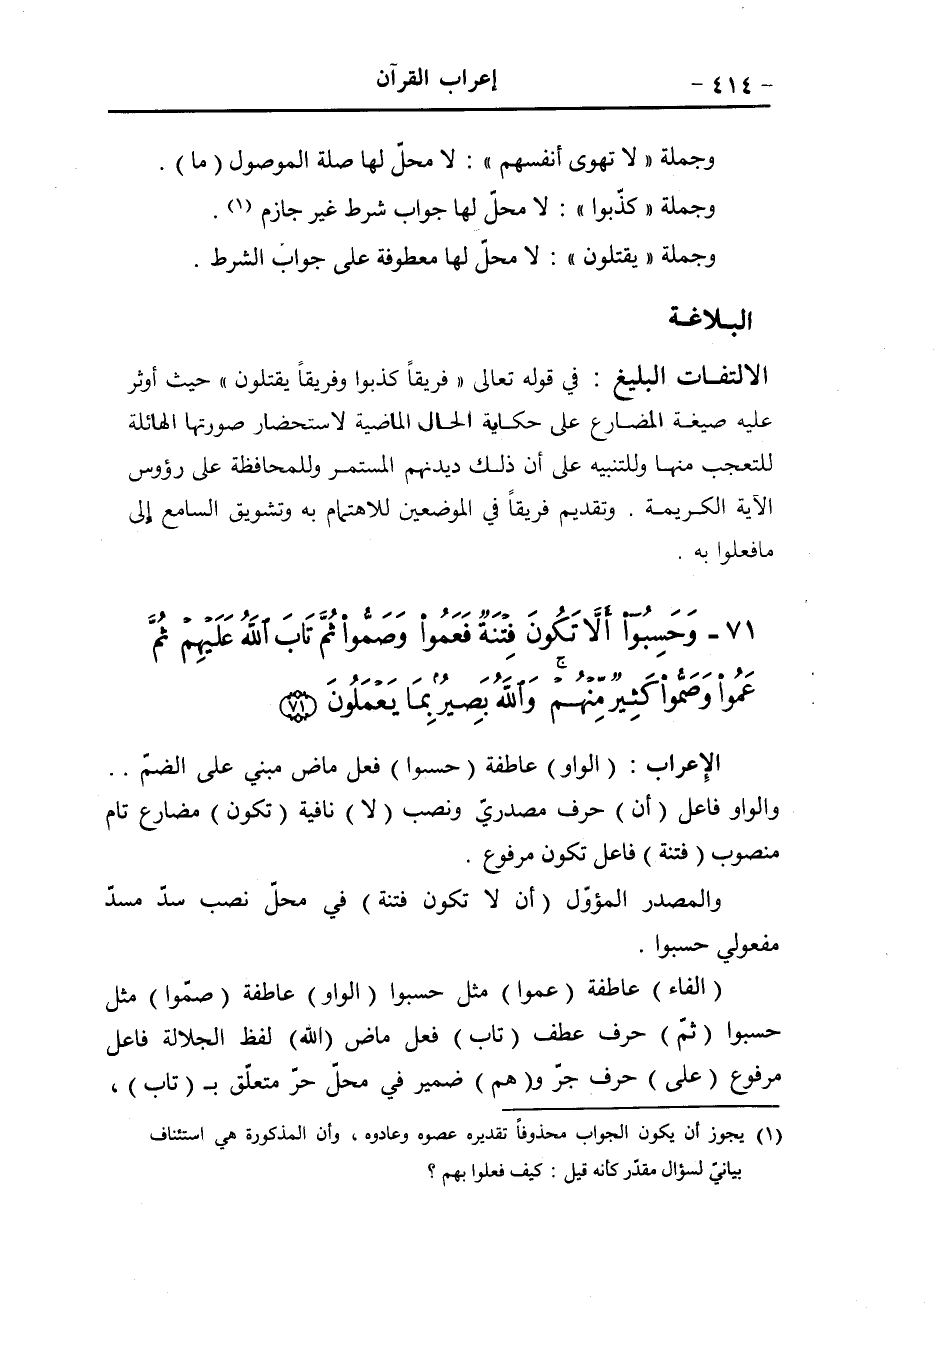 - ٤١٤ - إعراب القرآن
وجملة « لا تهوى أنفسهم » : لا محلّ لها صلة الموصول ( ما ) .
وجملة « كذّبوا » : لا محلّ لها جواب شرط غير جازم (١) .
وجملة « يقتلون » : لا محلّ لها معطوفة على جواب الشرط .
البـلاغـة
الالتفـات البليغ : في قوله تعالى « فريقاً كذبوا وفريقاً يقتلون » حيث أوثر
عليه صيغـة المضـارع على حكـاية الحـال الماضية لاستحضار صورتها الهائلة
للتعجب منهـا وللتنبيه على أن ذلـك ديدنهم المستمـر وللمحافظة على رؤوس
الآية الكـريمـة . وتقديم فريقاً في الموضعين للاهتمام به وتشويق السامع إلى
مافعلوا به .
٧١ - وَحَسِبُوٓا۟ أَلَّا تَكُونَ فِتْنَةٌ فَعَمُوا۟ وَصَمُّوا۟ ثُمَّ تَابَ ٱللَّهُ عَلَيْهِمْ ثُمَّ
عَمُوا۟ وَصَمُّوا۟ كَثِيرٌ مِّنْهُمْ ۚ وَٱللَّهُ بَصِيرٌۢ بِمَا يَعْمَلُونَ ﴿٧١﴾
الإعراب : ( الواو ) عاطفة ( حسبوا ) فعل ماض مبني على الضمّ . .
والواو فاعل ( أن ) حرف مصدريّ ونصب ( لا ) نافية ( تكون ) مضارع تام
منصوب ( فتنة ) فاعل تكون مرفوع .
والمصدر المؤوّل ( أن لا تكون فتنة ) في محلّ نصب سدّ مسدّ
مفعولي حسبوا .
( الفاء ) عاطفة ( عموا ) مثل حسبوا ( الواو ) عاطفة ( صمّوا ) مثل
حسبوا ( ثمّ ) حرف عطف ( تاب ) فعل ماض (الله) لفظ الجلالة فاعل
مرفوع ( على ) حرف جرّ و( هم ) ضمير في محلّ حرّ متعلّق بـ ( تاب ) ،
(١) يجوز أن يكون الجواب محذوفاً تقديره عصوه وعادوه ، وأن المذكورة هي استئناف
بيانيّ لسؤال مقدّر كأنه قيل : كيف فعلوا بهم ؟